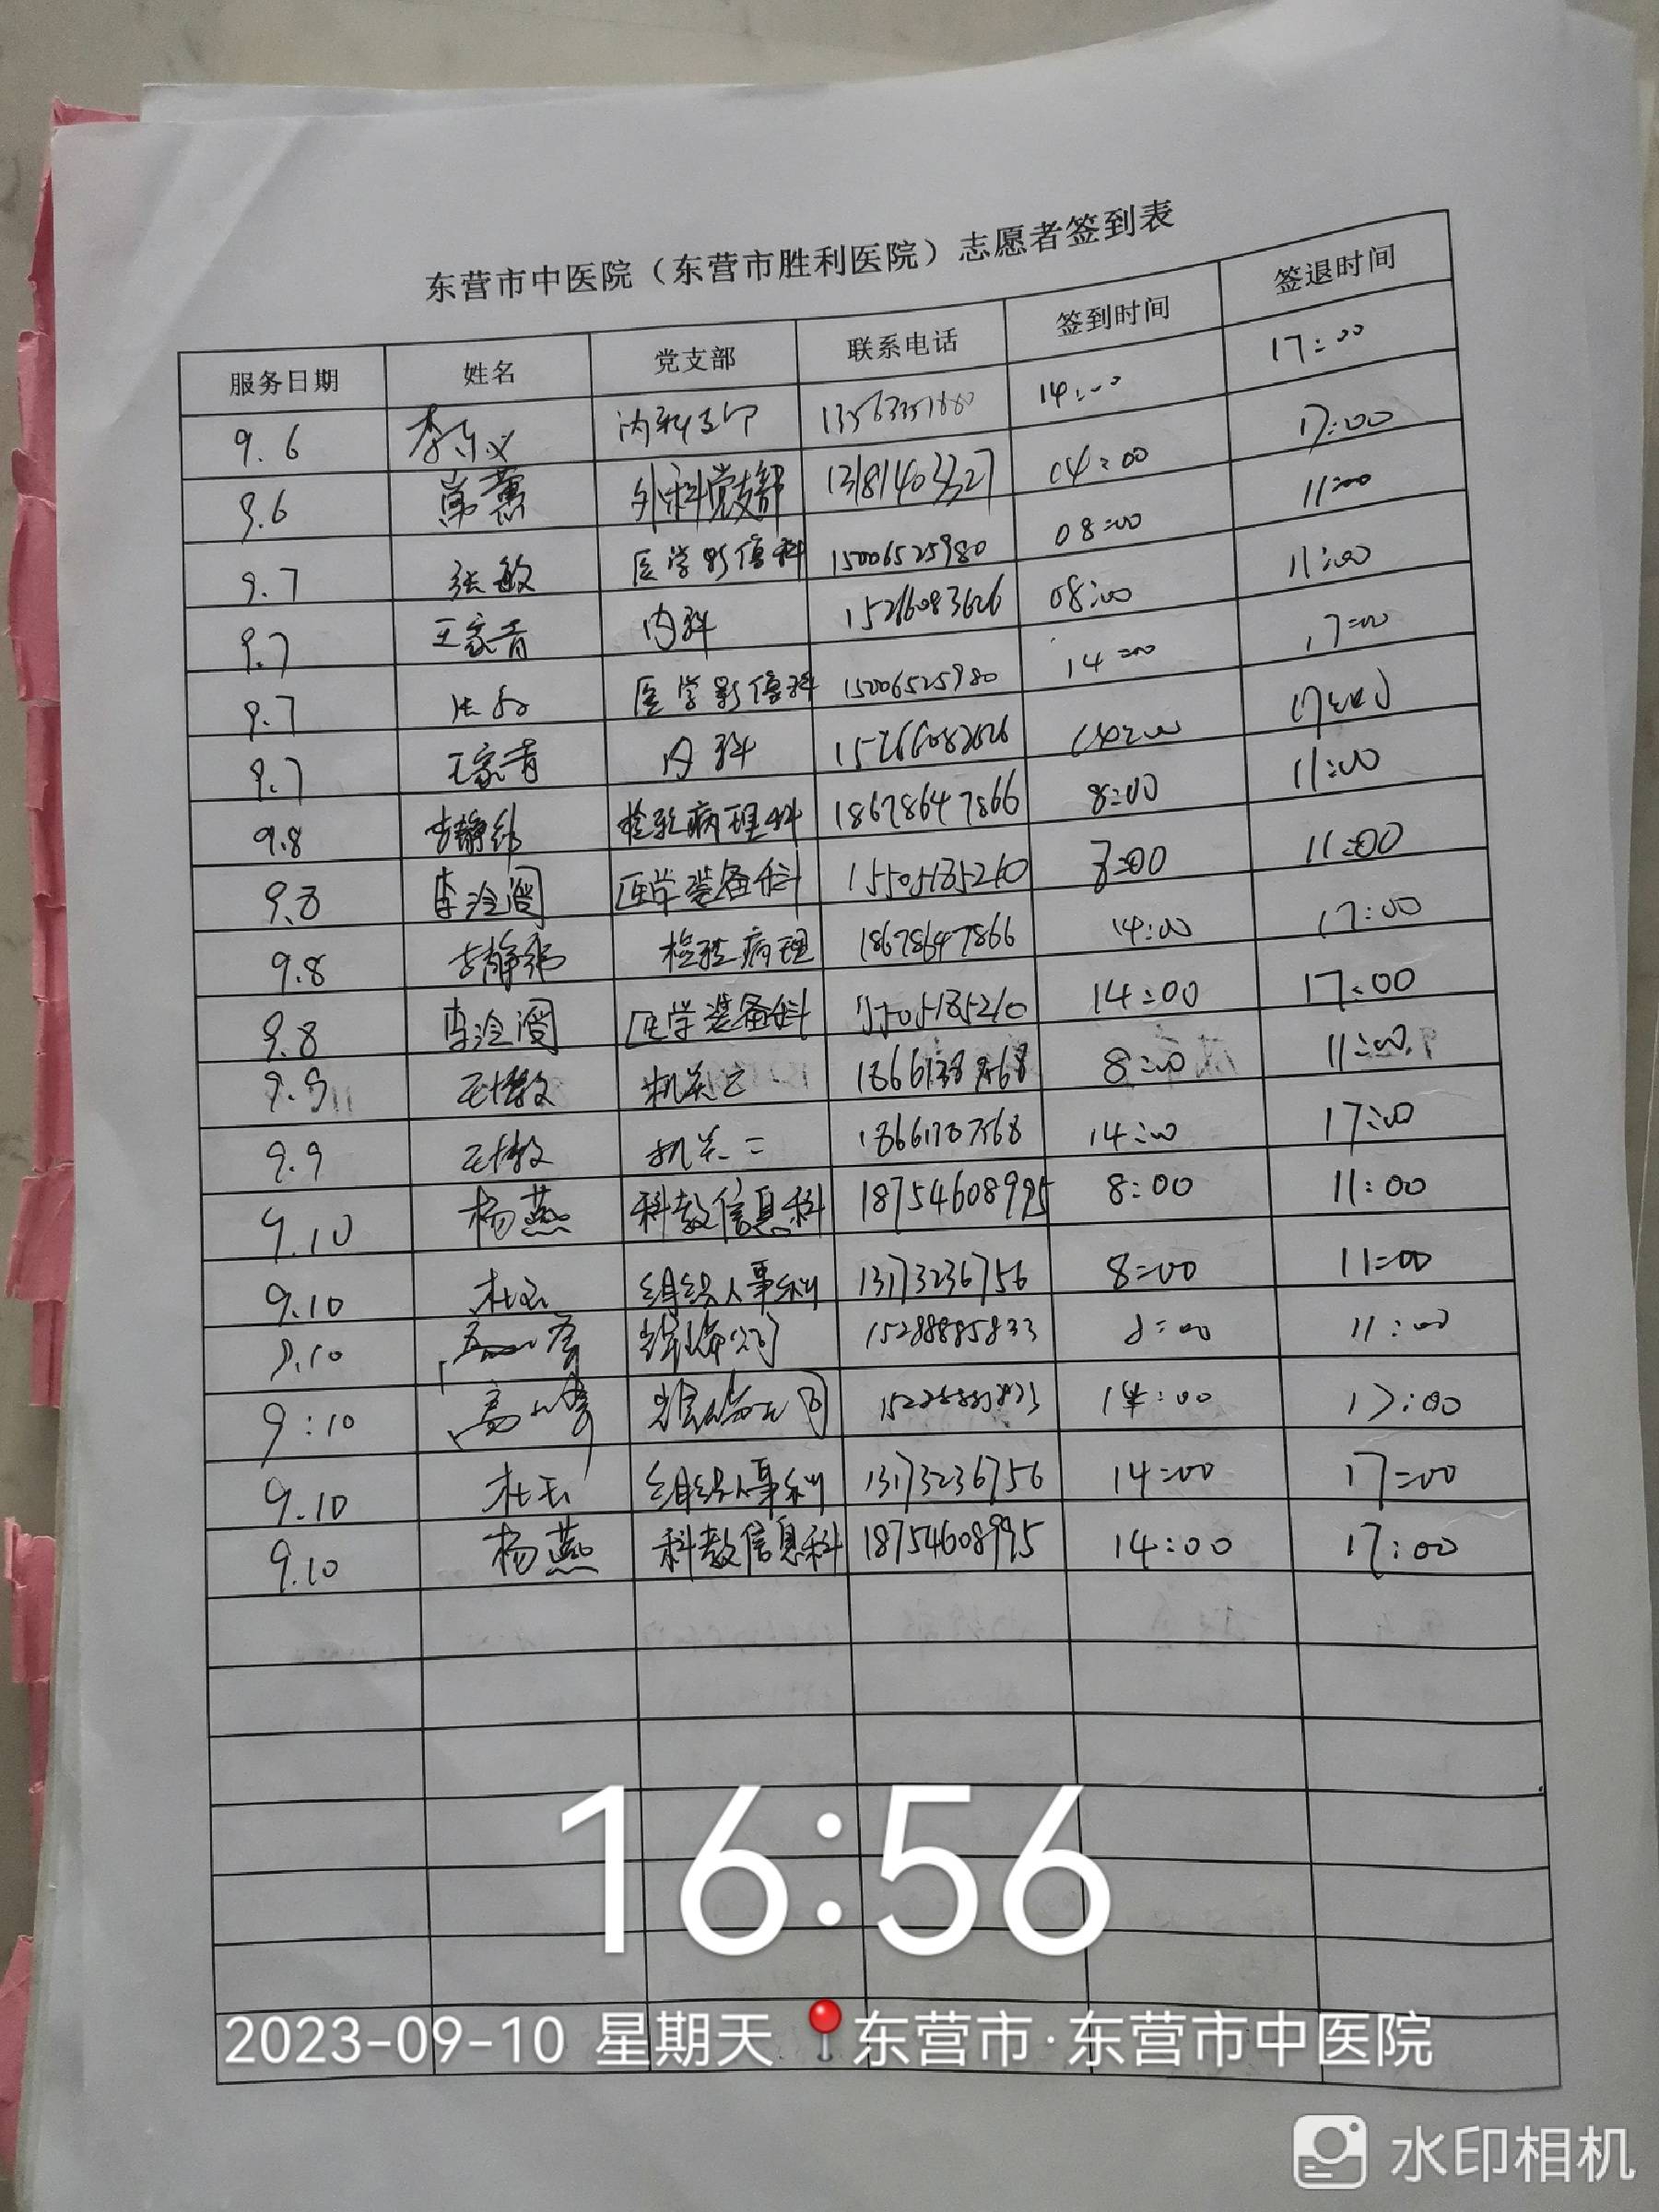 东营市中医院（东营市胜利医院）志愿者签到表
服务日期 姓名 党支部 联系电话 签到时间 签退时间
9.6 内科支部 14:00 17:00
9.6 外科党支部 13181403327 14:00 17:00
9.7 张敏 医学影像科 15006525980 08:00 11:00
9.7 王家青 内科 08:00 11:00
9.7 张敏 医学影像科 15006525980 14:00 17:00
9.7 王家青 内科 14:00 17:00
9.8 检验病理科 18678647866 8:00 11:00
9.8 医学装备科 15505185210 8:00 11:00
9.8 检验病理 18678647866 14:00 17:00
9.8 医学装备科 15505185210 14:00 17:00
9.9 机关二 8:00 11:00
9.9 机关二 14:00 17:00
9.10 杨燕 科教信息科 18754608995 8:00 11:00
9.10 杜玉 组织人事科 13173236756 8:00 11:00
9.10 15288885833 8:00 11:00
9:10 14:00 17:00
9.10 杜玉 组织人事科 13173236756 14:00 17:00
9.10 杨燕 科教信息科 18754608995 14:00 17:00
16:56
2023-09-10 星期天 东营市·东营市中医院
水印相机